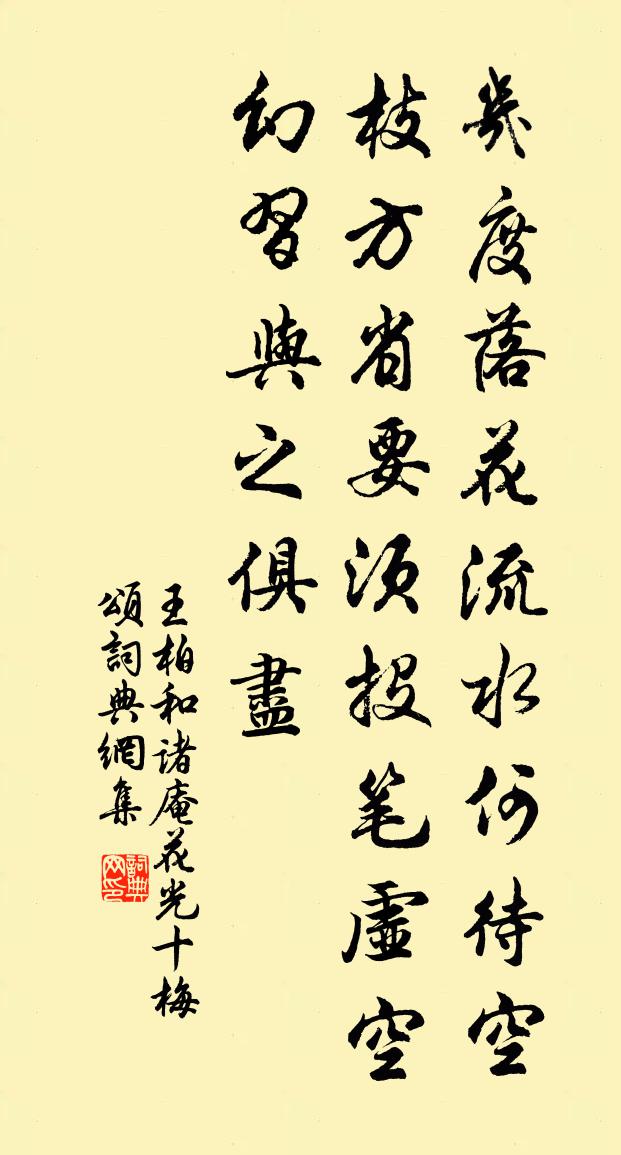 幾度落花流水何待空
枝方省要須投笔虛空
幻習與之俱盡
王柏和諸庵花光十梅
頌詞典網集
詞典网印